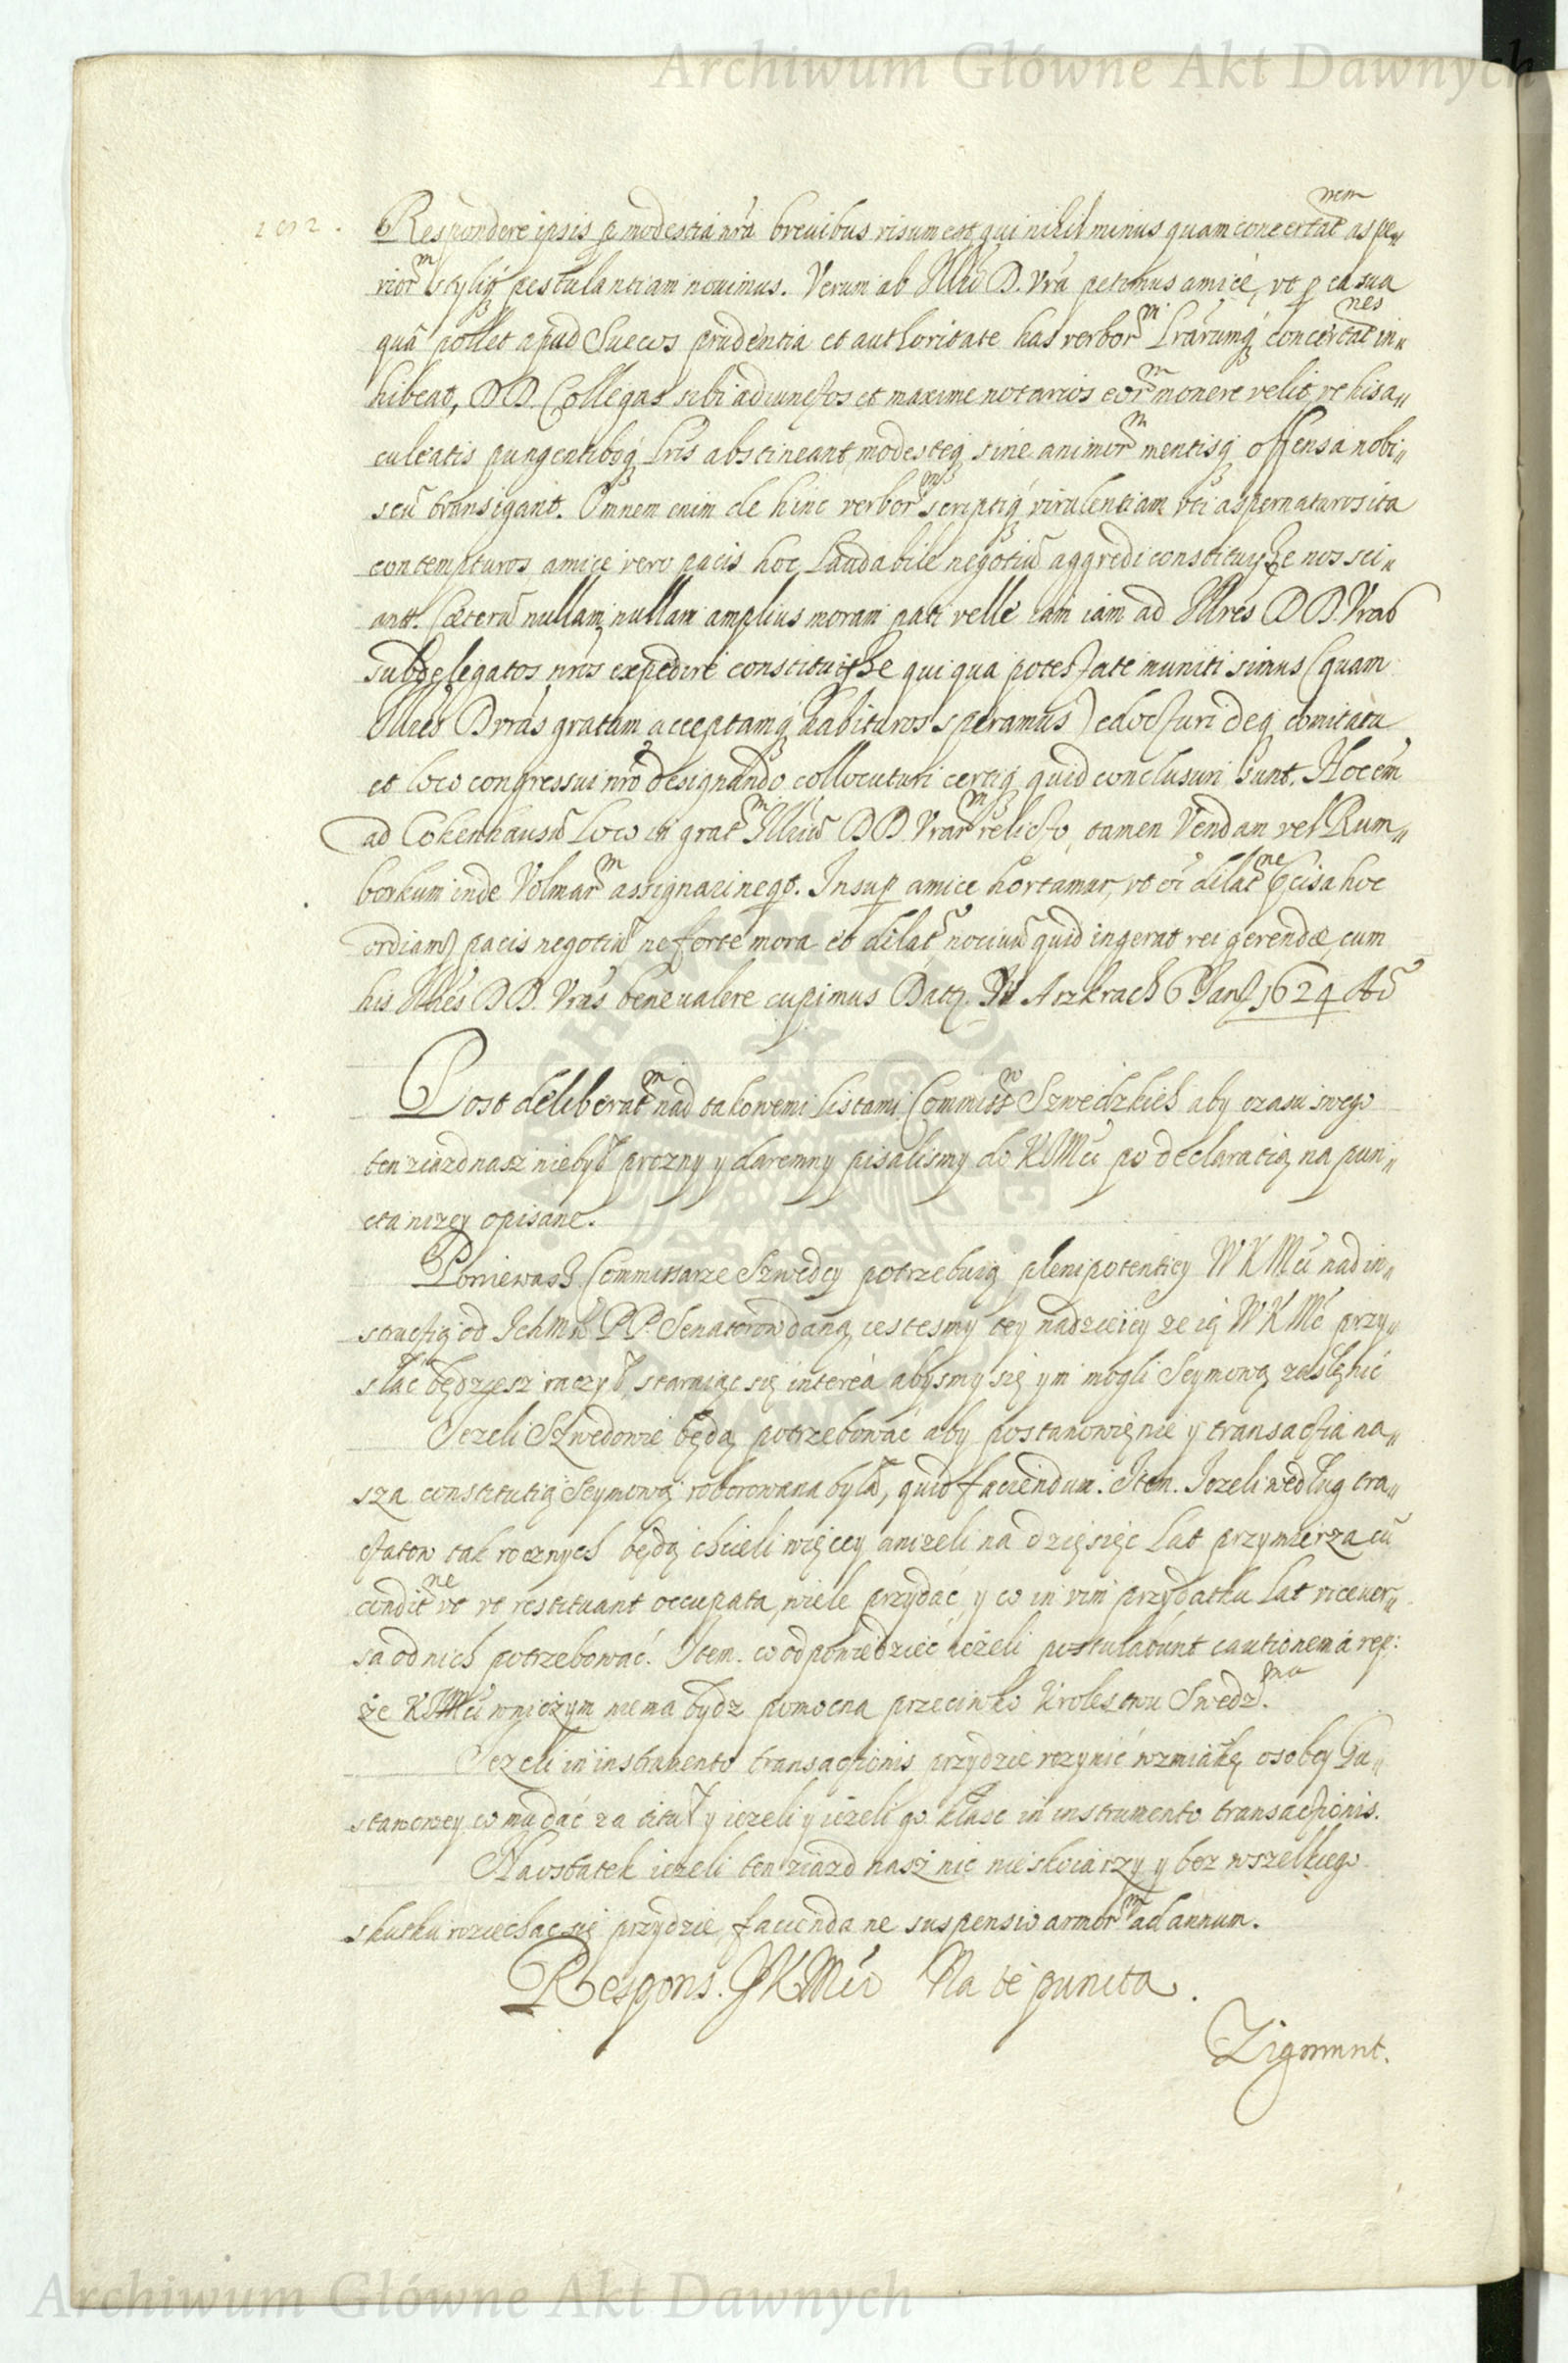 Archiwum Główne Akt Dawnych
Respondere ipsis p modestia nr̃a breuibus visum est, qui nihil minus quam concertat̃nem aspe„
rior̃m stylig petulantiam nouimus. Verum ab Illr̃i D. Vr̃a petimus amicè, vt p ea sua
quã pollet apud Suecos prudentia et authoritate has verbor̃m Lr̃arumq concertat̃nes in„
hibeat, DD. Collegas sibi adiunctos et maxime notarios eor̃m monere velit, vt his a„
culeatis pungentibq Lr̃is abstineant, modesteq sine animor̃m mentisq offensa nobi„
scũ transigant. Omnem enim de hinc verbor̃m scriptiq virulentiam vti aspernaturos ita
contempturos amice vero pacis hoc laudabile negotiũ aggredi constituisse nos sci„
ant. Cæterũ nullam nullam amplius moram pati velle iam iam ad Illres DD. Vras
subdelegatos nr̃os expedire constituisse qui qua potestate muniti simus (quam
Illres D Vras gratam acceptamq habituros speramus) edocturi deq comitatu
et loco congressui nr̃o designando collocuturi certiq quid conclusuri sunt. Hoc em̃
ad Cokenhausũ loco in grat̃m Illriũ DD. Vrar̃m relicto, tamen Vendam vel Rum„
borkum inde Volmar̃m assignari neqt. Insup amice hortamur, vt oi dilat̃ne pcisa hoc
ordiamr pacis negotiũ ne forte mora et dilat̃o nociuũ quid ingerat rei gerendæ, cum
his Illres DD. Vras bene valere cupimus Datt. In Aszkrach 6 Janr 1624 Aõ
Post deliberat̃m nad takowemi listami Commiss̃w Szwedzkich aby czasu swego
ten ziazd nasz niebył prozny y daremny pisalismy do KJMći po declaratią na pun„
cta nizey opisane.
Poniewasz Commissarze Szwedcy potrzebuią plenipotentiey W K Mći nad in„
structią od Ichmć PP. Senatorow daną, iestesmy tey nadzieiey ze ią W K Mć przy„
słać będziesz raczył, staraiąc się intereà abysmy się ym mogli Seymową zasłęnić
Jezeli Szwedowie będą potrzebować aby postanowięnie y transactia na„
sza constitutią Seymową roborowana była, quid faciendum. Item. Jezeli według tra„
ctatow tak rocznych będą chcieli więcey anizeli na dzięsięć lat przymierza cũ
condit̃ne vt vt restituant occupata, wiele przydać, y co in vim przydatku lat vicever„
sa od nich potrzebować. Item. co odpowiedzieć ieżeli postulabunt cautionem á rep:
że KJMći wniczym niema bydz pomocna przeciwko Krolestwu Swedz.mu
Jezeli in instrumento transactionis przydzie vczynić wzmiãkę osobey Gu„
stawowey co mu dać za tituł y iezeli y ieżeli go kłasc in instrumento transactionis.
Naostatek iezeli ten ziazd nasz nic nieskoiarzy y bez wszelkiego
skutku roziechac się przydzie, facienda ne suspensio armor̃m ad annum.
Respons. JKMći Na te puncta.
Zigmunt.
Archiwum Główne Akt Dawnych